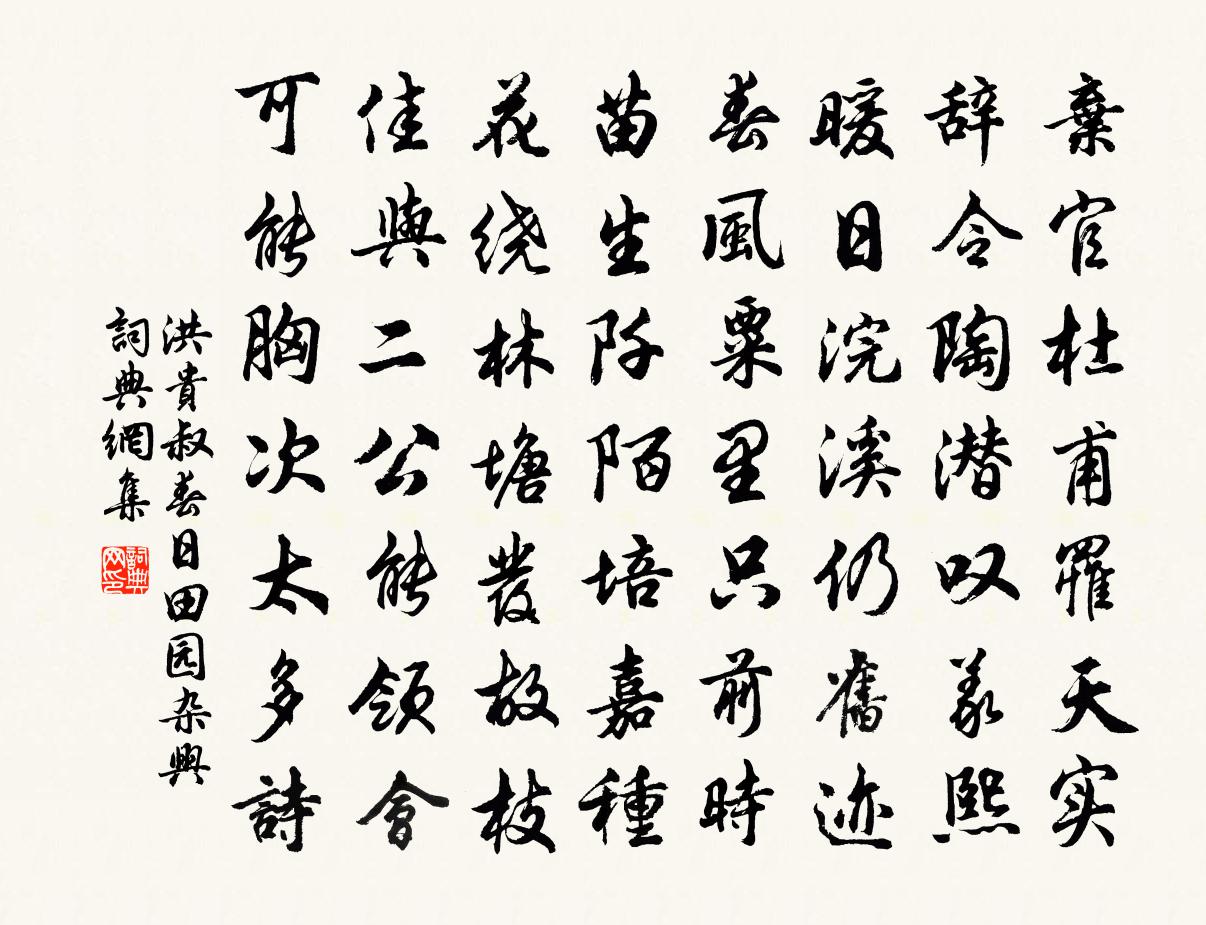 棄官杜甫罹天实
辞令陶潜叹义熙
暖日浣溪仍舊迹
春風粟里只前時
苗生阡陌培嘉種
花绕林塘發故枝
佳興二公能領會
可能胸次太多詩
洪貴叔春日田园杂興
詞典網集
詞典网印